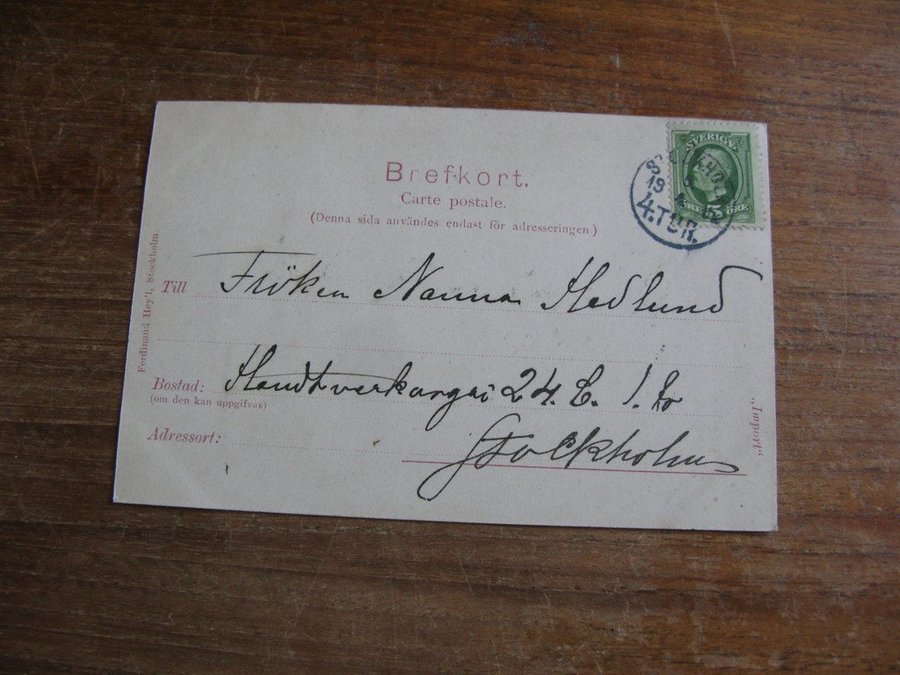 Brefkort.
Carte postale.
(Denna sida användes endast för adresseringen)
SVERIGE
5
ÖRE
19
4.TUR.
Till Fröken Nanna Hedlund
Bostad: Handtverkargat 24. C. 1. tr
(om den kan uppgifvas)
Adressort: Stockholm
Ferdinand Hey'l, Stockholm.
„Import"